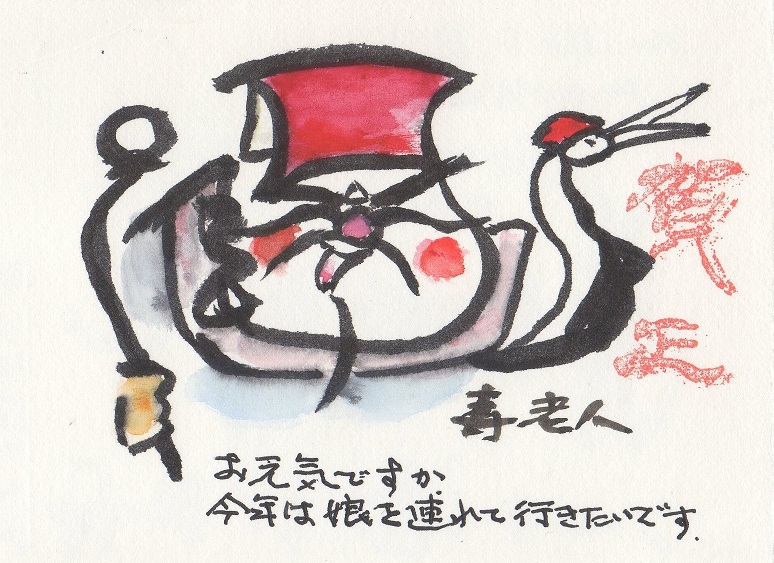 賀正
寿老人
お元気ですか
今年は娘を連れて行きたいです.